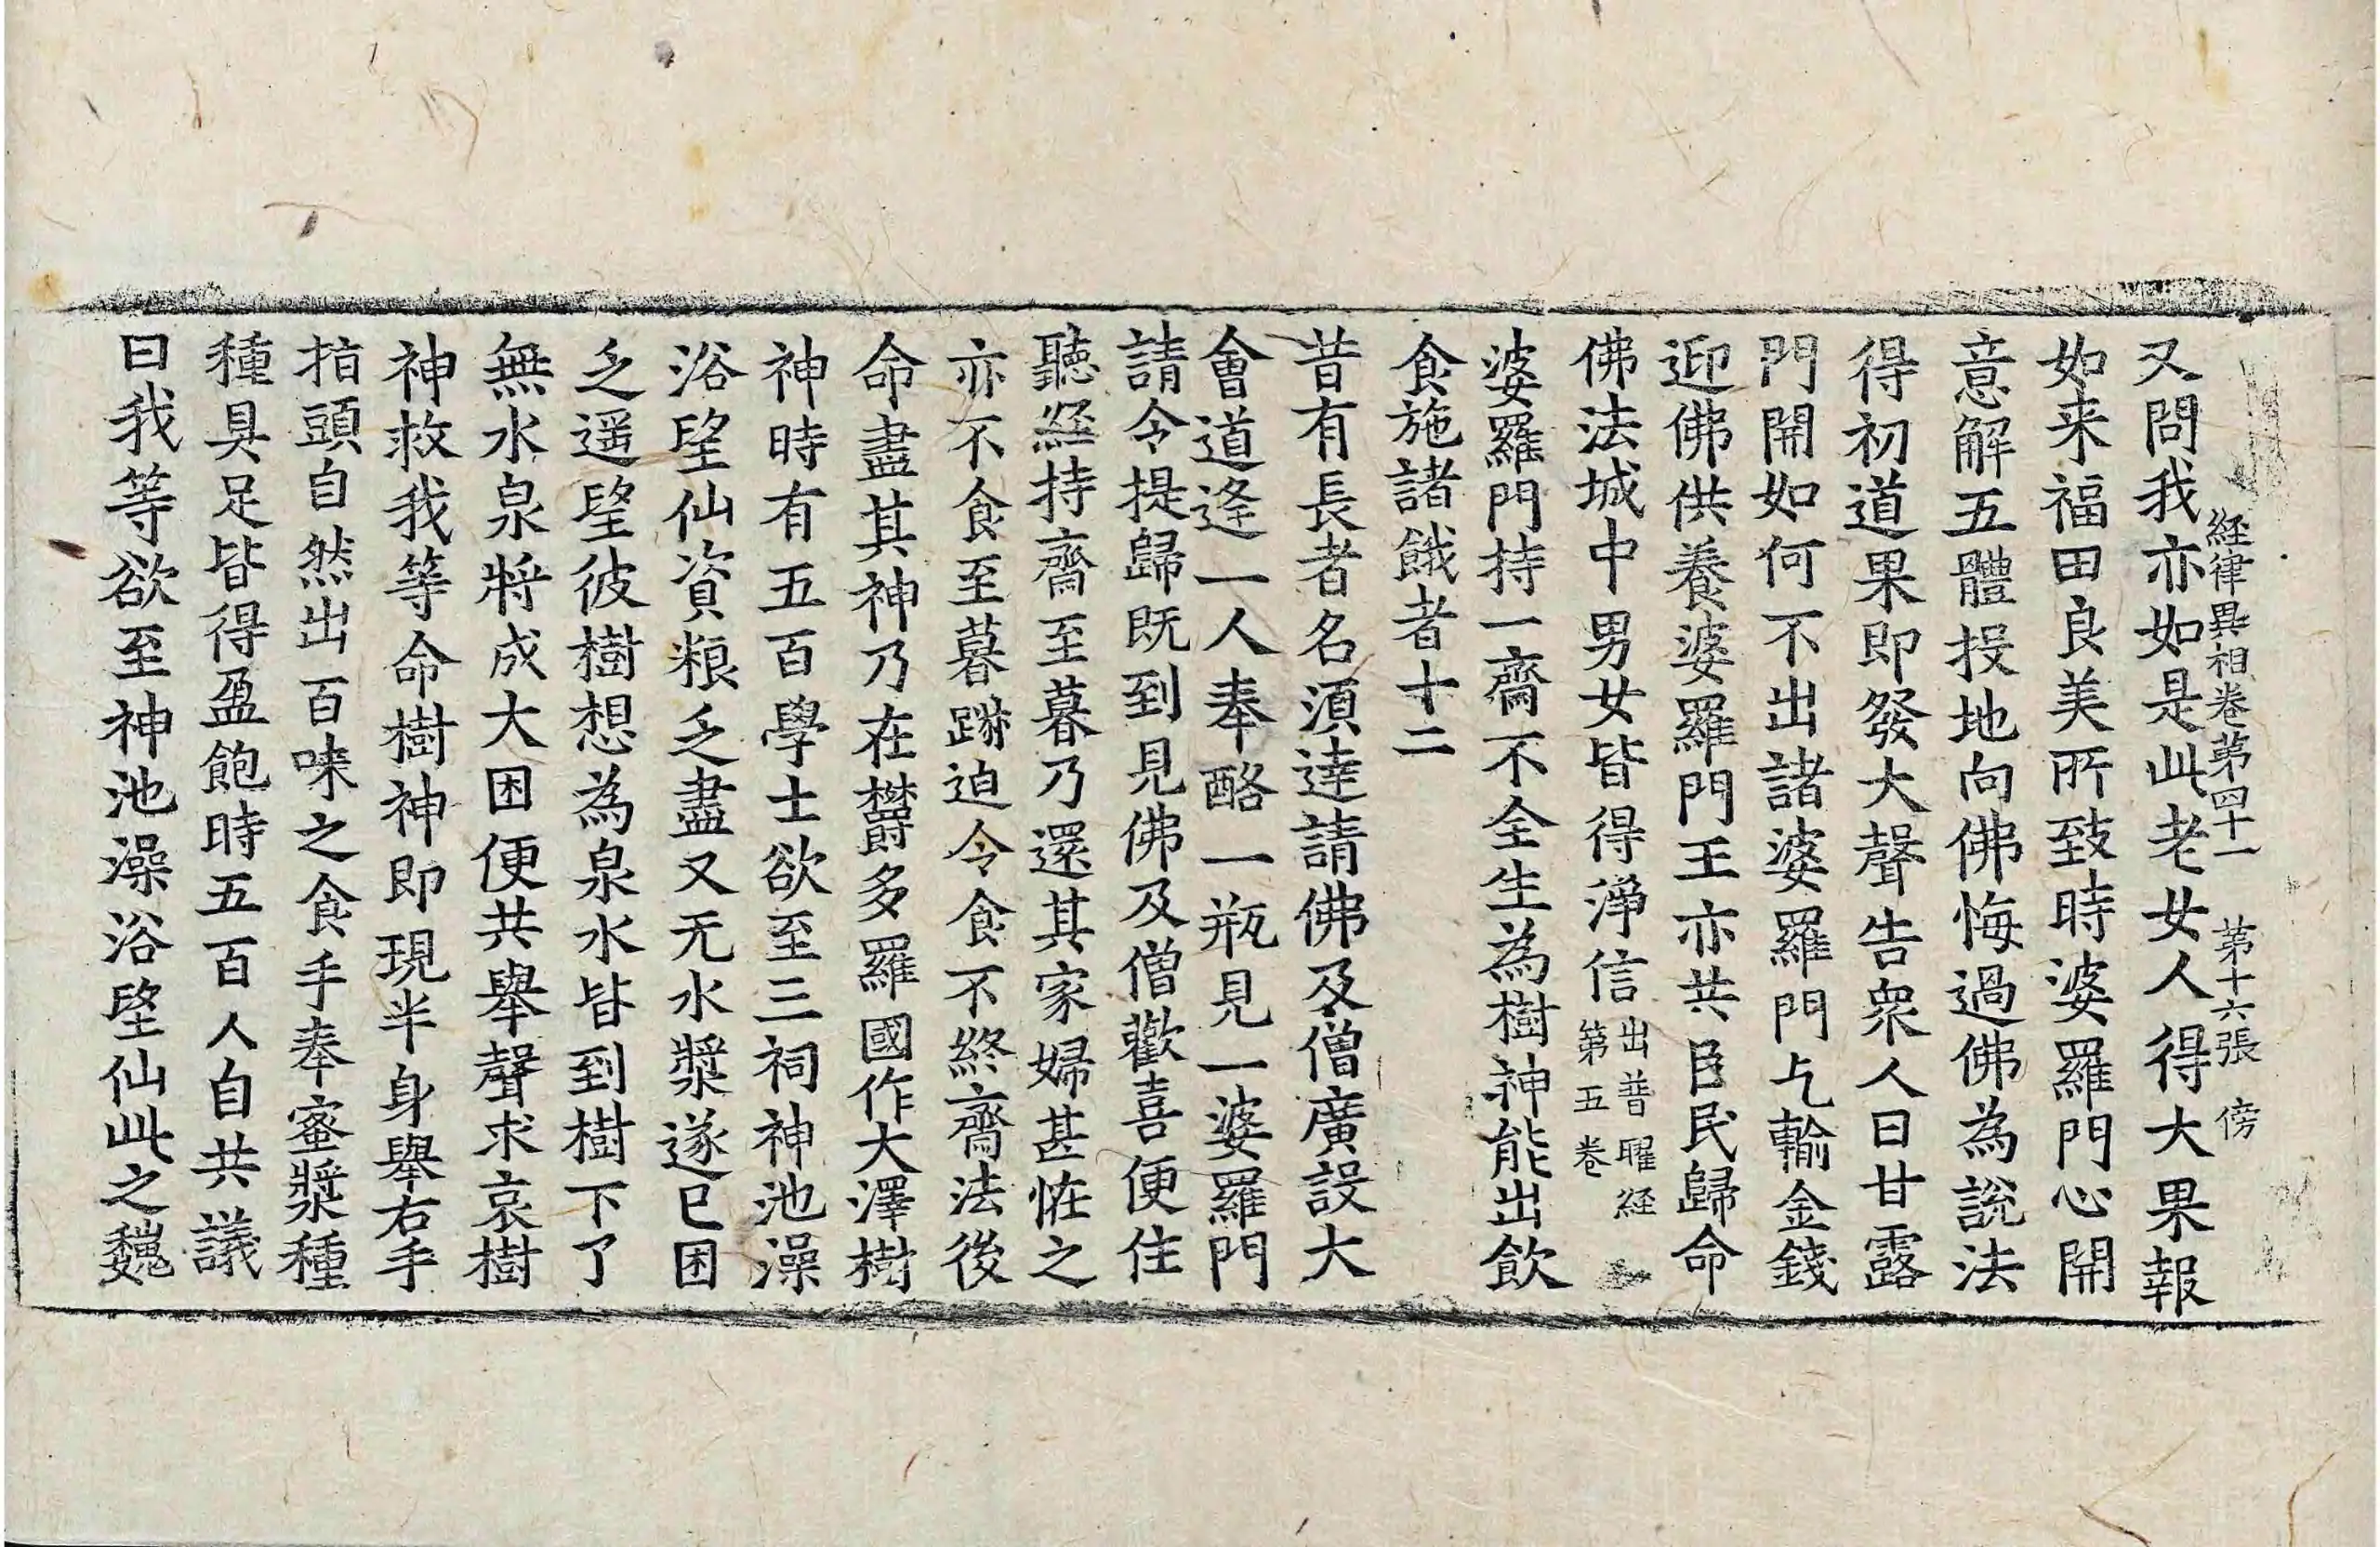 経律異相卷苐四十一　苐十六張　傍
又問我亦如是此老女人得大果報
如来福田良美所致時婆羅門心開
意解五體投地向佛悔過佛為說法
得初道果即發大聲告衆人曰甘露
門開如何不出諸婆羅門乞輸金錢
迎佛供養婆羅門王亦共臣民歸命
佛法城中男女皆得淨信出普曜経第五卷
婆羅門持一齋不全生為樹神能出飲
食施諸餓者十二
昔有長者名湏達請佛及僧廣設大
會道逢一人奉酪一瓶見一婆羅門
請令提歸既到見佛及僧歡喜便住
聽経持齋至暮乃還其家婦甚恠之
亦不食至暮蹴迫令食不終齋法後
命盡其神乃在欝多羅國作大澤樹
神時有五百學士欲至三祠神池澡
浴望仙資粮乏盡又无水漿遂已困
乏遥望彼樹想為泉水皆到樹下了
無水泉將成大困便共舉聲求哀樹
神救我等命樹神即現半身舉右手
指頭自然出百味之食手奉蜜漿種
種具足皆得盈飽時五百人自共議
曰我等欲至神池澡浴望仙此之巍